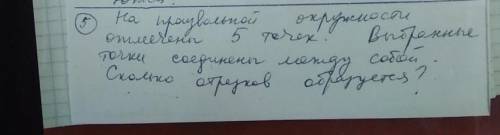 5 На произвольной окружности
отмечены 5 точек. Выбранные
точки соединены между собой.
Сколько отрезков образуется?